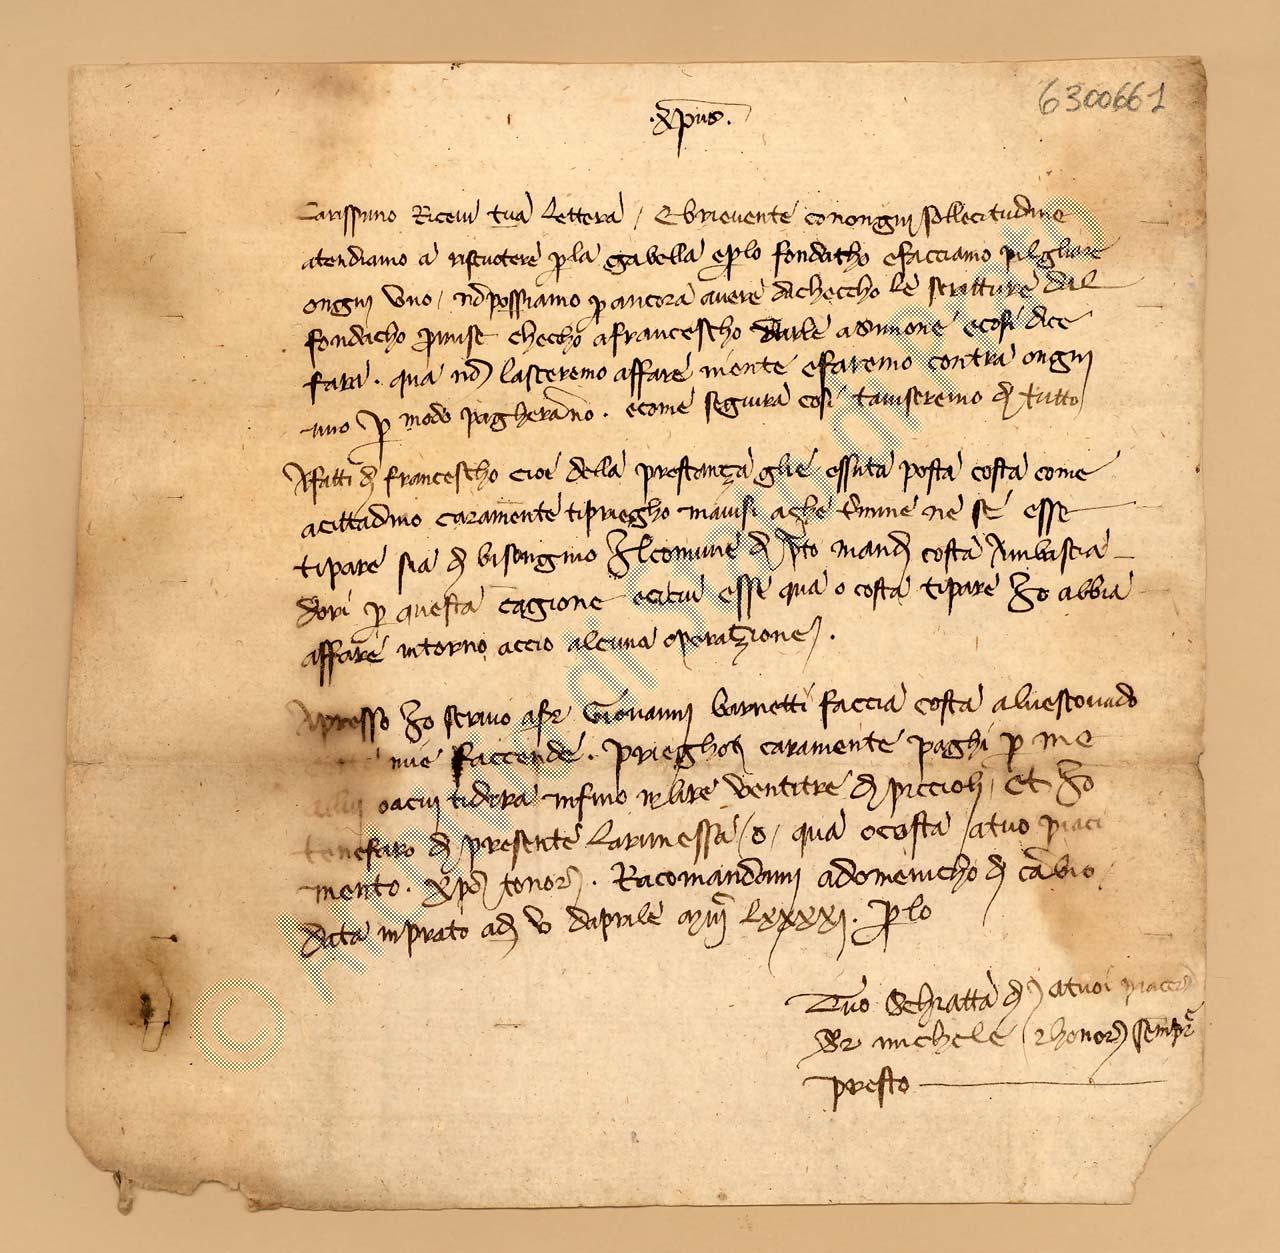 6300661
.xpus.
Carissimo Ricevi tua lettera / Ebrievente conongni sollecitudine
atendiamo a riscuotere p la gabella eplo fondacho efacciamo pilgliare
ongni uno / no possiamo p ancora avere dacheccho le scritture dal
fondacho promise checcho afrancescho darle asimone ecosi dice
fara . qua no lasceremo affare niente efaremo contra ongni
uno p modo pagherano . ecome seguira cosi tauiseremo di tutto
Afatti di francescho cioe della prestanza glie essuta posta costa come
acittadino caramente tipriegho mauisi ache termine ne se esse
tipare sia di bisongnio Il comune di pto mandi costa Ambascia
dori p questa cagione ecitui esse qua o costa tipare Io abbia
affare intorno accio alcuna operatzione .
Apresso Io scrivo a ser Giovanni barnetti faccia costa aluescouado
mie faccende . prieghoti caramente paghi p me
allui oacui tidira infino in lire ventitre di piccioli / Et Io
tenefaro di presente larimessa / o / qua ecosta / atuo piaci
mento . xpo tonori . Racomandami adomenicho di cabio
data inprato adi v daprile LXXXXI . plo
Tuo Schiatta di atuoi piaceri
Ser michele honori sempre
presto